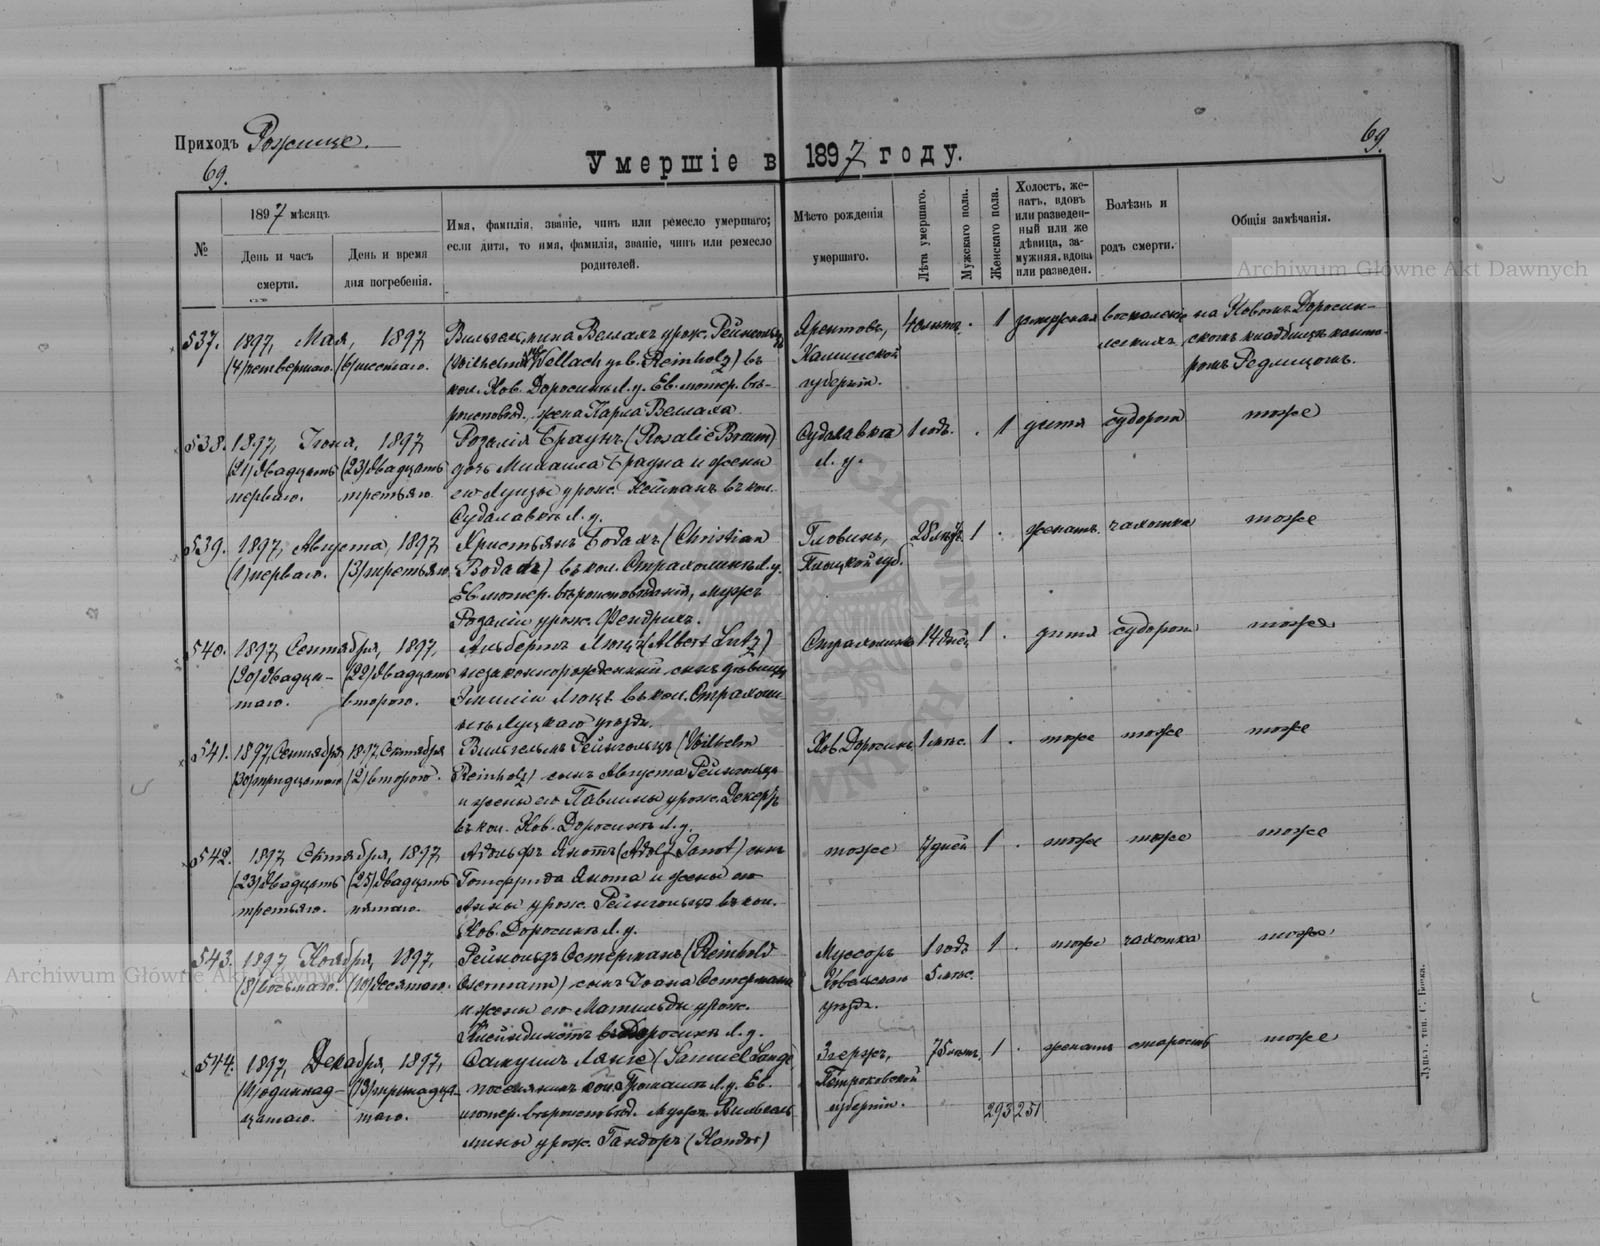 Приходъ Рожище.
69.
69.
Умершіе в 1897 году.
№
1897 мѣсяцъ
День и часъ смерти.
День и время дня погребенія.
Имя, фамилія, званіе, чинъ или ремесло умершаго;
если дитя, то имя, фамилія, званіе, чинъ или ремесло
родителей.
Мѣсто рожденія
умершаго.
Лѣта умершаго.
Мужскаго пола.
Женскаго пола.
Холостъ, же-
натъ, вдовъ
или разведен-
ный или же
дѣвица, за-
мужняя, вдова
или разведен.
Болѣзнь и
родъ смерти.
Общія замѣчанія.
537. 1897, Мая, 1897
(4) четвертаго. (6) шестаго.
Вильгельмина Веллахъ урож. Рейнгольцъ
(Wilhelmine Wellach geb. Reinholz) въ
кол. Нов. Доросинъ Л. у. Ев. лютер. вѣ-
роисповѣд., жена Карла Веллаха.
Калишской
губерніи.
1 замужняя воспаленіе
легкихъ
на Новомъ Доросин-
скомъ кладбищѣ канто-
ромъ Редлицомъ.
538. 1897, Іюня, 1897
(21) двадцать (23) двадцать
перваго. третьяго.
Розалія Браунъ (Rosalie Braun)
дочь Михаила Брауна и жены
его Луизы урож. Нейманъ въ кол.
Судалавка Л. у.
Судалавка
Л. у.
1 годъ. 1 дитя судорога тоже
539. 1897, Августа, 1897
(1) перваго. (3) третьяго.
Христьянъ Бодахъ (Christian
Bodach) въ кол. Страхолинъ Л. у.
Ев. лютер. вѣроисповѣданія, мужъ
Розаліи урож. Фендрихъ.
Гловинъ,
Плоцкой губ.
28 лѣтъ 1 женатъ чахотка тоже
540. 1897, Сентября, 1897,
(20) двадца- (22) двадцать
таго. втораго.
Альбертъ Люцъ (Albert Lutz)
незаконнорожденный сынъ дѣвицы
Эмиліи Люцъ въ кол. Страхоли-
нѣ Луцкаго уѣзда.
Страхолинъ 14 дней 1 дитя судорога тоже
541. 1897, Сентября 1897, Октября
(30) тридцатаго (2) второго.
Вильгельмъ Рейнгольцъ (Wilhelm
Reinholz) сынъ Августа Рейнгольца
и жены его Павлины урож. Декертъ
въ кол. Нов. Доросинъ Л. у.
Нов. Доросинъ 1 мѣс. 1 тоже тоже тоже
542. 1897, Октября, 1897
(23) двадцать (25) двадцать
третьяго. пятаго.
Адольфъ Янотъ (Adolf Janot) сынъ
Готфрида Янота и жены его
Анны урож. Рейнгольцъ въ кол.
Нов. Доросинъ Л. у.
тоже 7 дней 1 тоже тоже тоже
543. 1897, Ноября, 1897,
(8) восьмаго. (10) десятаго.
Рейнольдъ Остерманъ (Reinhold
Ostermann) сынъ Іоана Остермана
и жены его Матильды урож.
Доросинъ Л. у.
Муссоръ
Ковельскаго
уѣзда.
1 годъ
5 мѣс.
1 тоже чахотка тоже
544. 1897, Декабря, 1897,
(11) одиннад- (13) тринадца-
цатаго. таго.
Самуилъ Ланге (Samuel Lange)
поселянинъ кол. Громашъ Л. у. Ев.
лютер. вѣроисповѣд. Мужъ Вильгель-
мины урож. Гандоръ
Згержъ,
Петроковской
губерніи.
75 лѣтъ 1 женатъ старость тоже
293 251
Луцкъ, тип. С. Бонка.
Archiwum Główne Akt Dawnych
Archiwum Główne Akt Dawnych